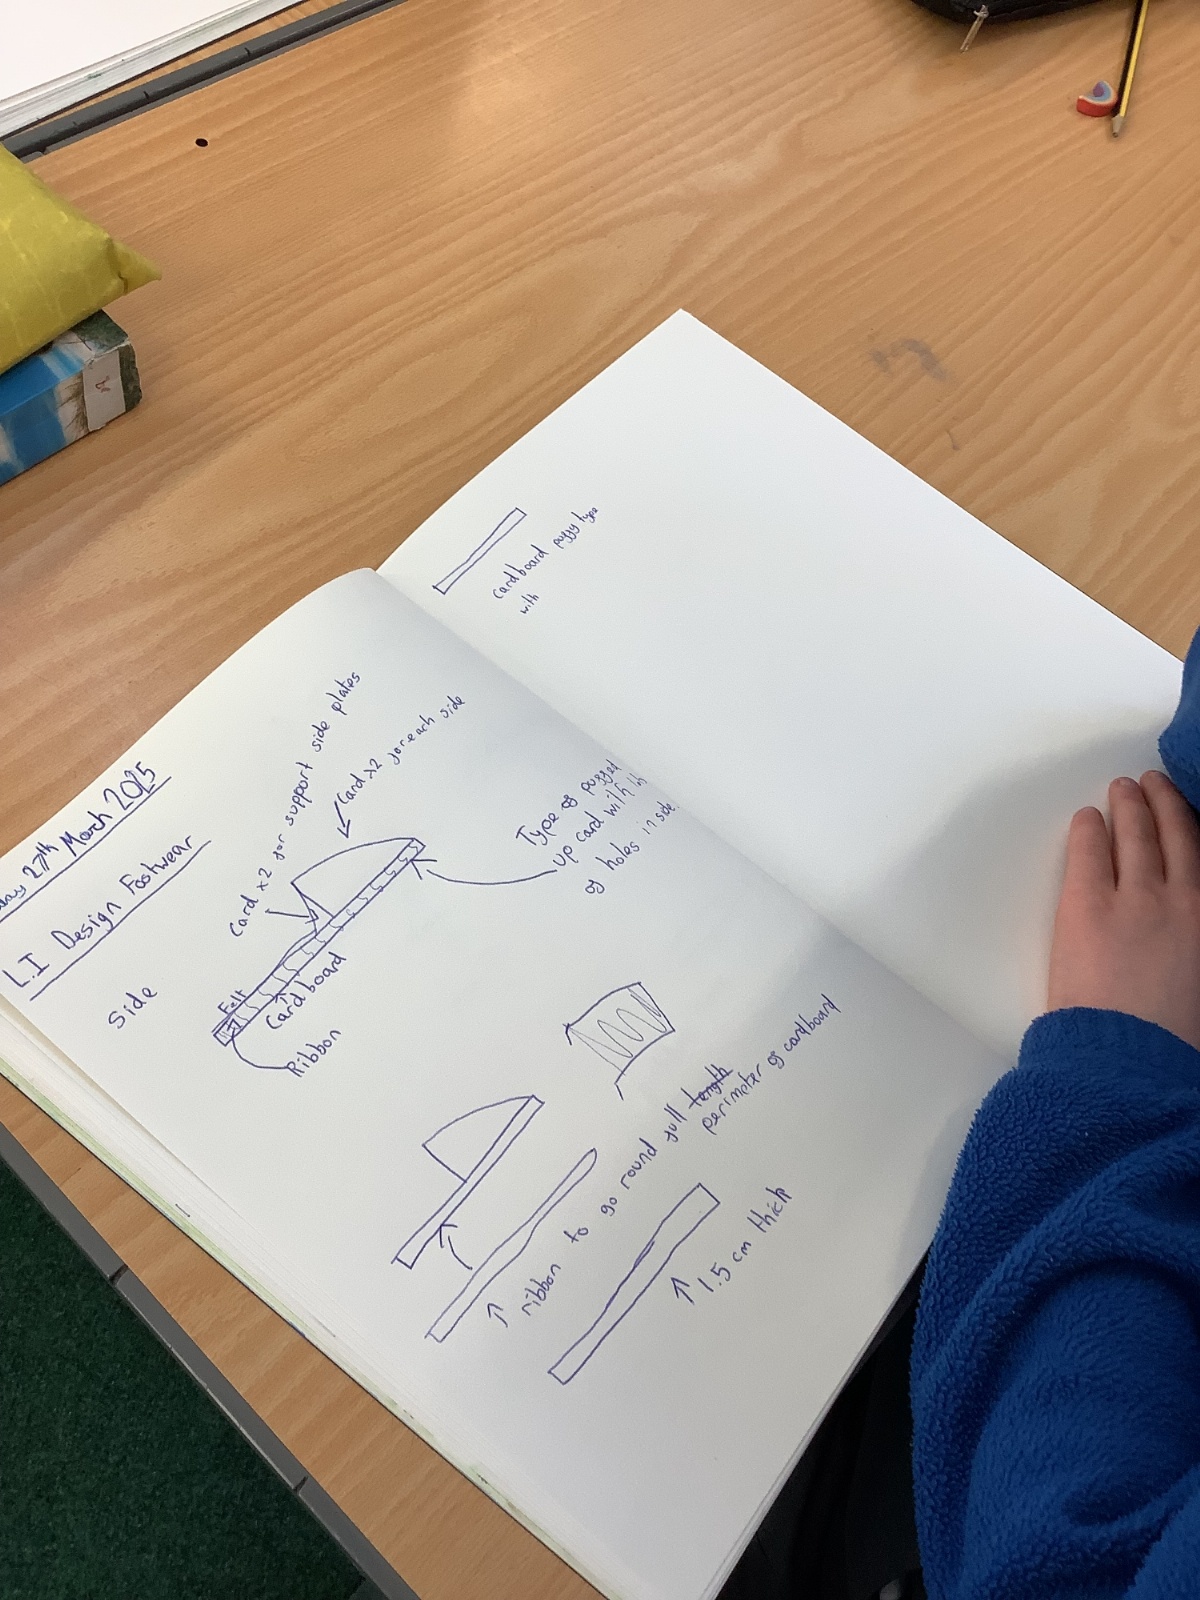 27th March 2025
L.I Design Footwear
Side
Card x2 for support side plates
Card x2 for each side
Type of puffed
up card with
of holes inside.
Felt
Cardboard
Ribbon
ribbon to go round full length
perimeter of cardboard
1.5 cm thick
cardboard puffy type
with